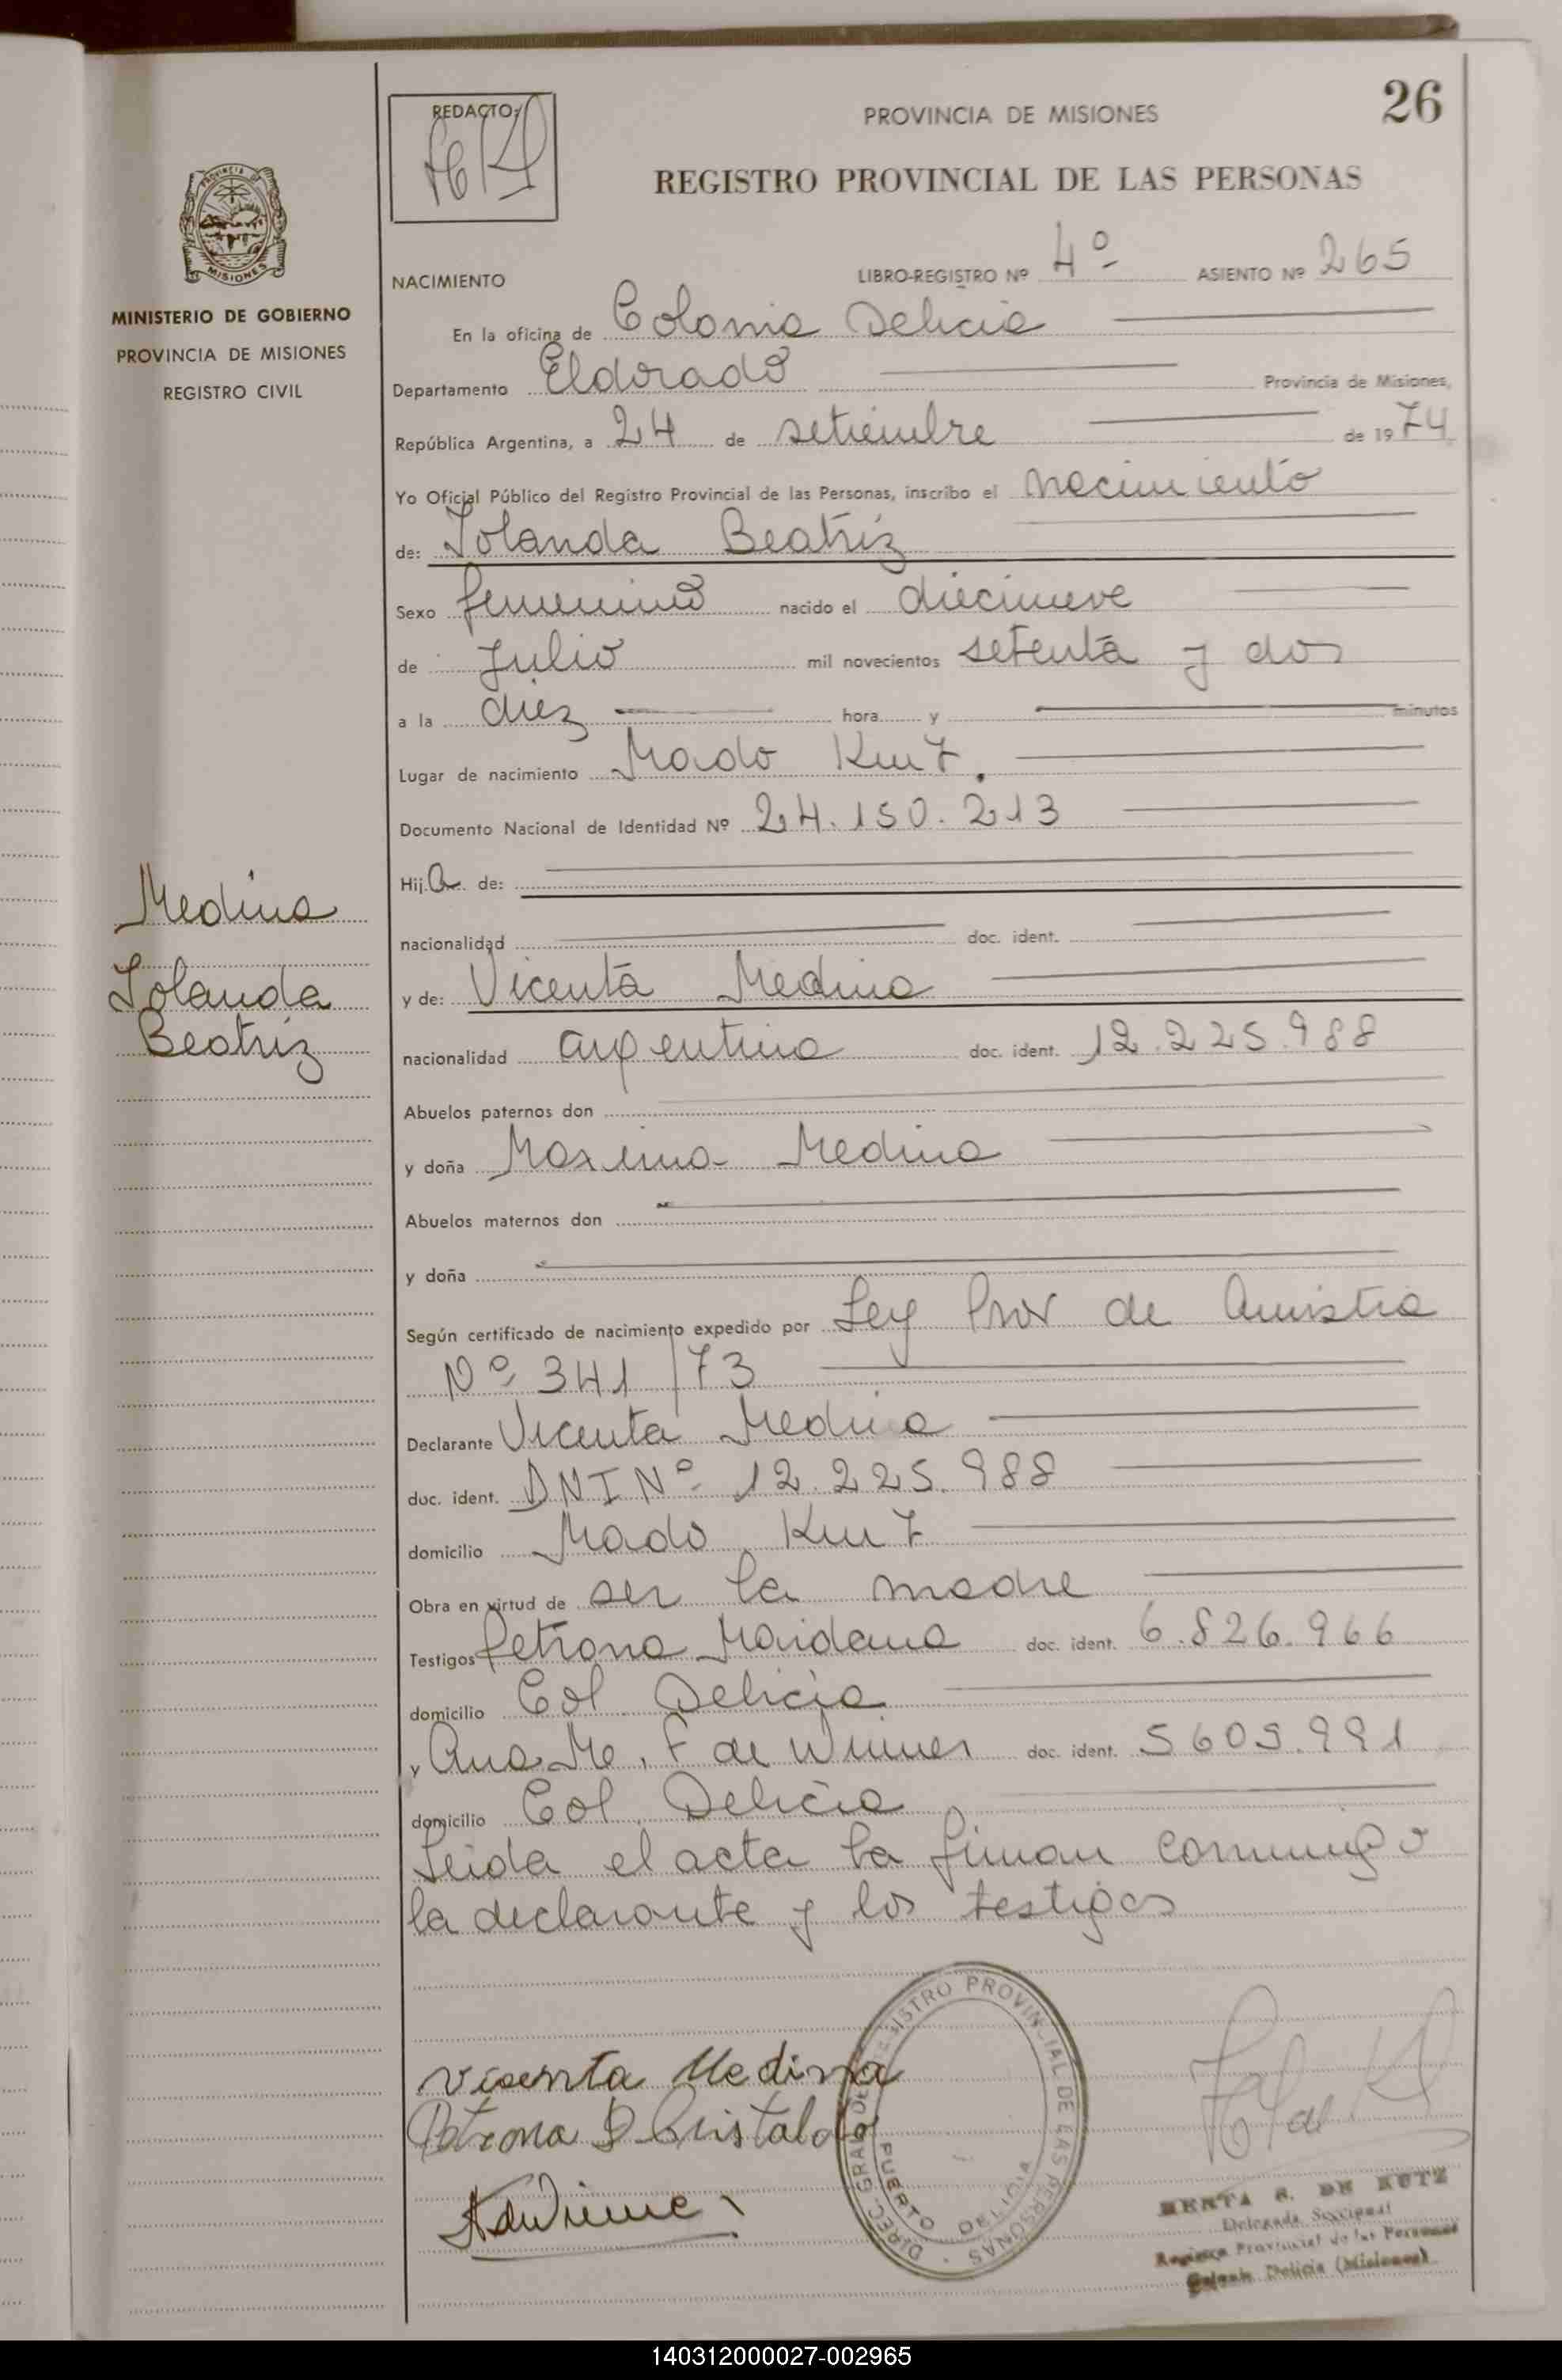 26
REDACTO:
PROVINCIA DE MISIONES
REGISTRO PROVINCIAL DE LAS PERSONAS
PROVINCIA DE MISIONES
MINISTERIO DE GOBIERNO
PROVINCIA DE MISIONES
REGISTRO CIVIL
NACIMIENTO LIBRO-REGISTRO Nº 4º ASIENTO Nº 265
En la oficina de Colonia Delicia
Departamento Eldorado Provincia de Misiones,
República Argentina, a 24 de setiembre de 1974
Yo Oficial Público del Registro Provincial de las Personas, inscribo el nacimiento
de: Iolanda Beatriz
Sexo femenino nacido el diecinueve
de Julio mil novecientos setenta y dos
a la diez hora y minutos
Lugar de nacimiento Mado Km 7.
Documento Nacional de Identidad Nº 24.150.213
Hija de:
nacionalidad doc. ident.
Medina
Iolanda
Beatriz
y de: Vicenta Medina
nacionalidad argentina doc. ident. 12.225.988
Abuelos paternos don
y doña Maxima Medina
Abuelos maternos don
y doña
Según certificado de nacimiento expedido por Ley Prov de Amistia
Nº 341/73
Declarante Vicenta Medina
doc. ident. DNI Nº 12.225.988
domicilio Mado Km 7
Obra en virtud de ser la madre
Testigos Petrona Maidana doc. ident. 6.826.966
domicilio Col Delicia
y Ana Ma. F de doc. ident. 5605.991
domicilio Col Delicia
Leida el acta la firman conmigo
la declarante y los testigos
Vicenta Medina
Petrona D Cristaldo
DIREC. GRAL. DEL REGISTRO PROVINCIAL DE LAS PERSONAS
PUERTO DELICIA
BERTA S. DE KUTZ
Delegada Seccional
Registro Provincial de las Personas
Colonia Delicia (Misiones)
140312000027-002965